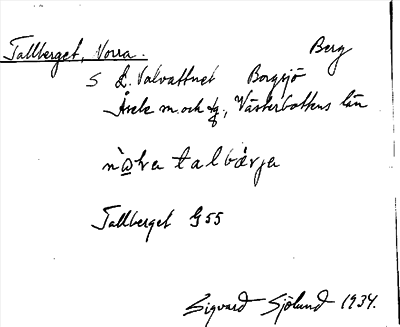 Tallberget, Norra. Berg
S L. Valvattnet Borgsjö
Åsele m. och tg, Västerbottens län
nò̱rra talbárja
Tallberget G55
Sigvard Sjölund 1934.